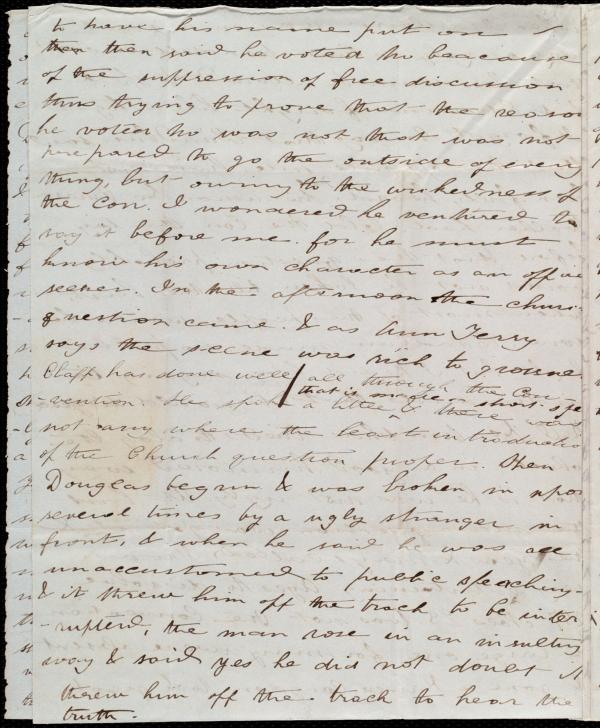 to have his name put on
then then said he voted no beacause
of the suppression of free discussion
thus trying to prove that the reason
he voted no was not that was not
prepared to go the outside of every
thing, but owing to the wickedness of
the con. I wondered he ventured to
say it before me for he must
know his own character as an office
seeker. In the afternoon the church
question came. & as Ann Terry
says the scene was rich to
Clapp has done well all through the Con-
-vention. He spoke a little, that is made a short spe
& there was
not any where the least introductio
of the Church question proper. Then
Douglas begun & was broken in upon
several times by a ugly stranger in
front, & when he said he was all
unaccustomed to public speaking-
& it threw him off the track to be inter
-rupted, the man rose in an insulting
way & said yes he did not doubt it
threw him off the track to hear the
truth.